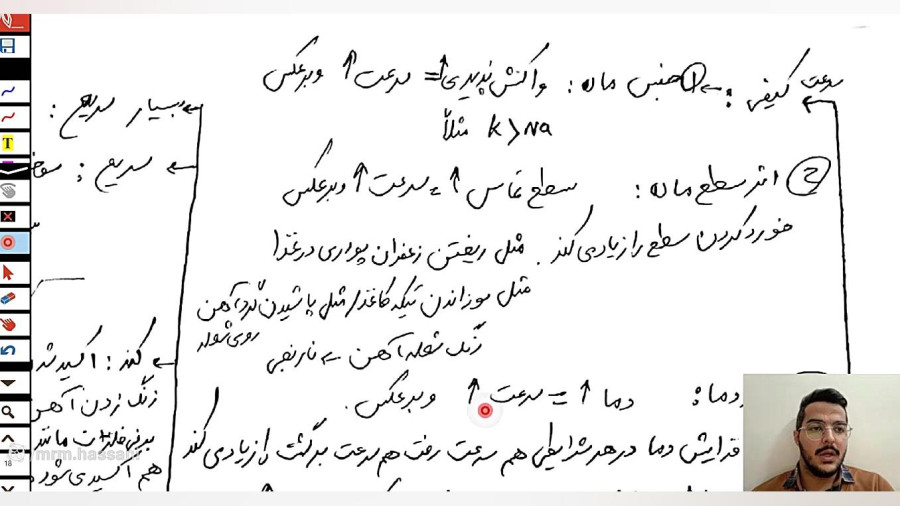 سرعت کیفی: ← ① جنس ماده: واکنش پذیری↑ = سرعت ↑ وبرعکس
مثلاً K > Na
② اثر سطح ماده: سطح تماس ↑ = سرعت ↑ وبرعکس
خورد کردن سطح را زیاد می کند. مثل ریختن زعفران پودری در غذا
مثل سوزاندن تیکه کاغذ / مثل پاشیدن گرد آهن
روی شعله
رنگ شعله آهن ← نارنجی
دما: دما ↑ = سرعت ↑ وبرعکس.
افزایش دما در هر شرایطی هم سرعت رفت هم سرعت برگشت را زیاد می کند
← بسیار سریع:
← سریع:
← کند: اکسید شد
زنگ زدن آهن
برخی فلزات مانند
هم اکسید می شود
mrm.hassani
T
18